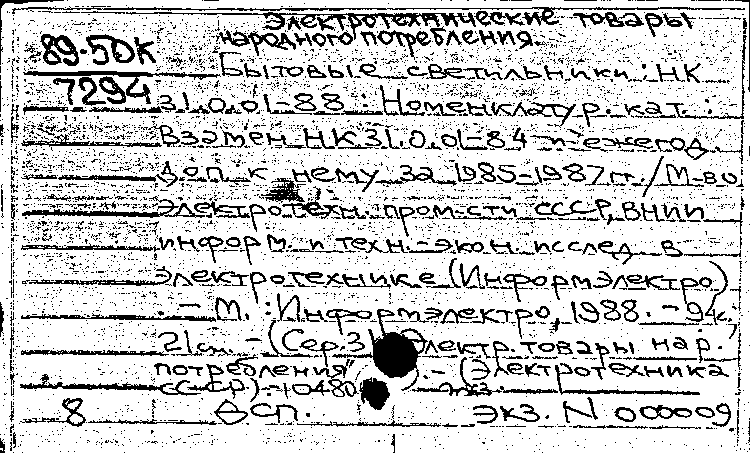 Электротехнические товары
народного потребления.
89-5DK
7294
Бытовые светильники: НК
31.0.01-88: Номенклатур. кат.:
Взамен НК 31.0.01-84 и ежегод.
доп. к нему за 1985-1987 гг. / М-во
электротехн. пром-сти СССР, ВНИИ
информ. и техн.-экон. исслед. в
электротехнике (Информэлектро)
. - М.: Информэлектро, 1988. - 94 с.;
21 см. - (Сер. 3 Электр. товары нар.
потребления" ). - (Электротехника
СССР).
8 Эсп. экз. N 000009